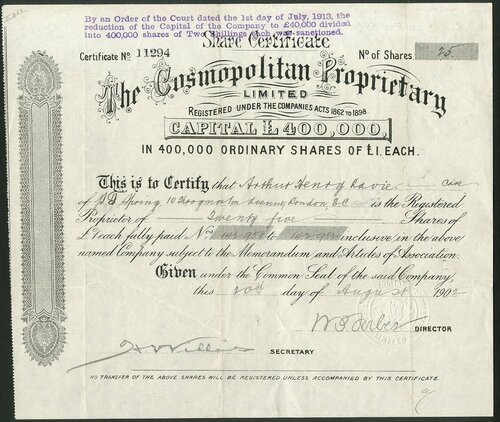 By an Order of the Court dated the 1st day of July, 1913, the
reduction of the Capital of the Company to £40,000 divided
into 400,000 shares of Two Shillings each was sanctioned.
Share Certificate
Certificate No. 11294
No of Shares 25
The Cosmopolitan Proprietary
LIMITED
REGISTERED UNDER THE COMPANIES ACTS 1862 TO 1898
CAPITAL £400,000,
IN 400,000 ORDINARY SHARES OF £1, EACH.
This is to Certify that Arthur Henry Davie care
of Spong 10 Throgmorton Avenue, London, E.C. is the Registered
Proprietor of Twenty five Shares of
£1 each fully paid Nos. to inclusive in the above
named Company subject to the Memorandum and Articles of Association.
Given under the Common Seal of the said Company,
this 20th day of August 1902
DIRECTOR
SECRETARY
NO TRANSFER OF THE ABOVE SHARES WILL BE REGISTERED UNLESS ACCOMPANIED BY THIS CERTIFICATE